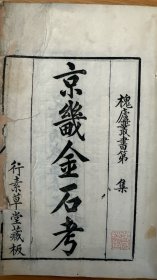 槐廬叢書第 集
京畿金石考
行素草堂藏板